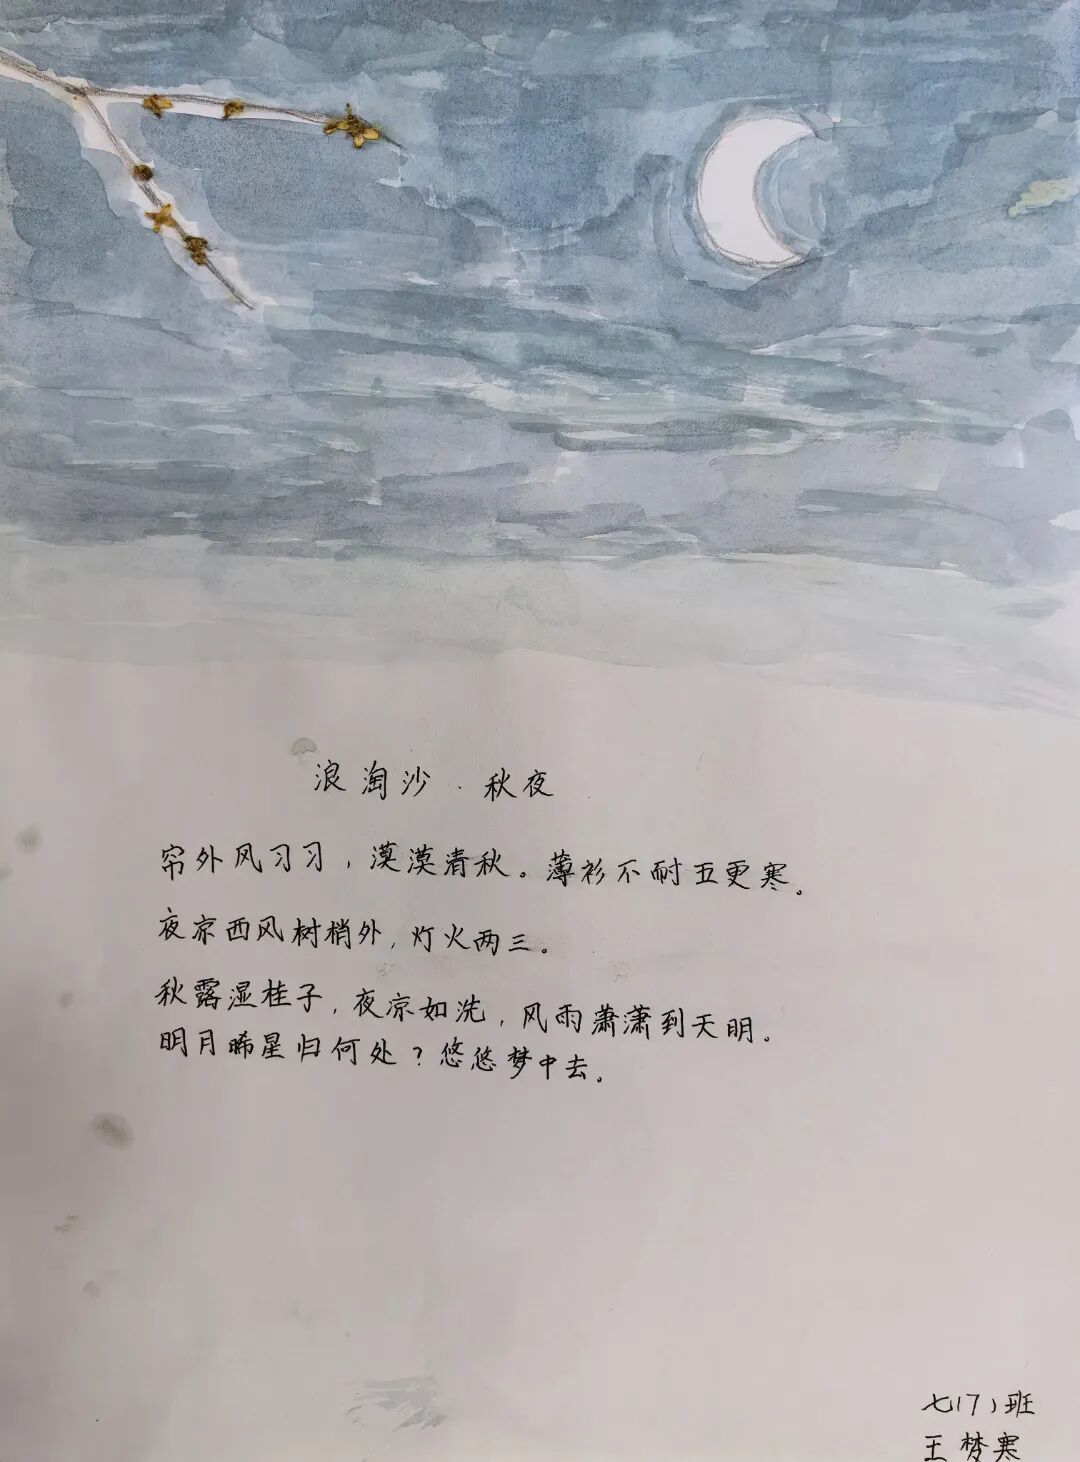 浪淘沙·秋夜
帘外风习习，漠漠清秋。薄衫不耐五更寒。
夜凉西风树梢外，灯火两三。
秋露湿桂子，夜凉如洗，风雨萧潇到天明。
明月晞星归何处？悠悠梦中去。
七(7)班
王梦寒